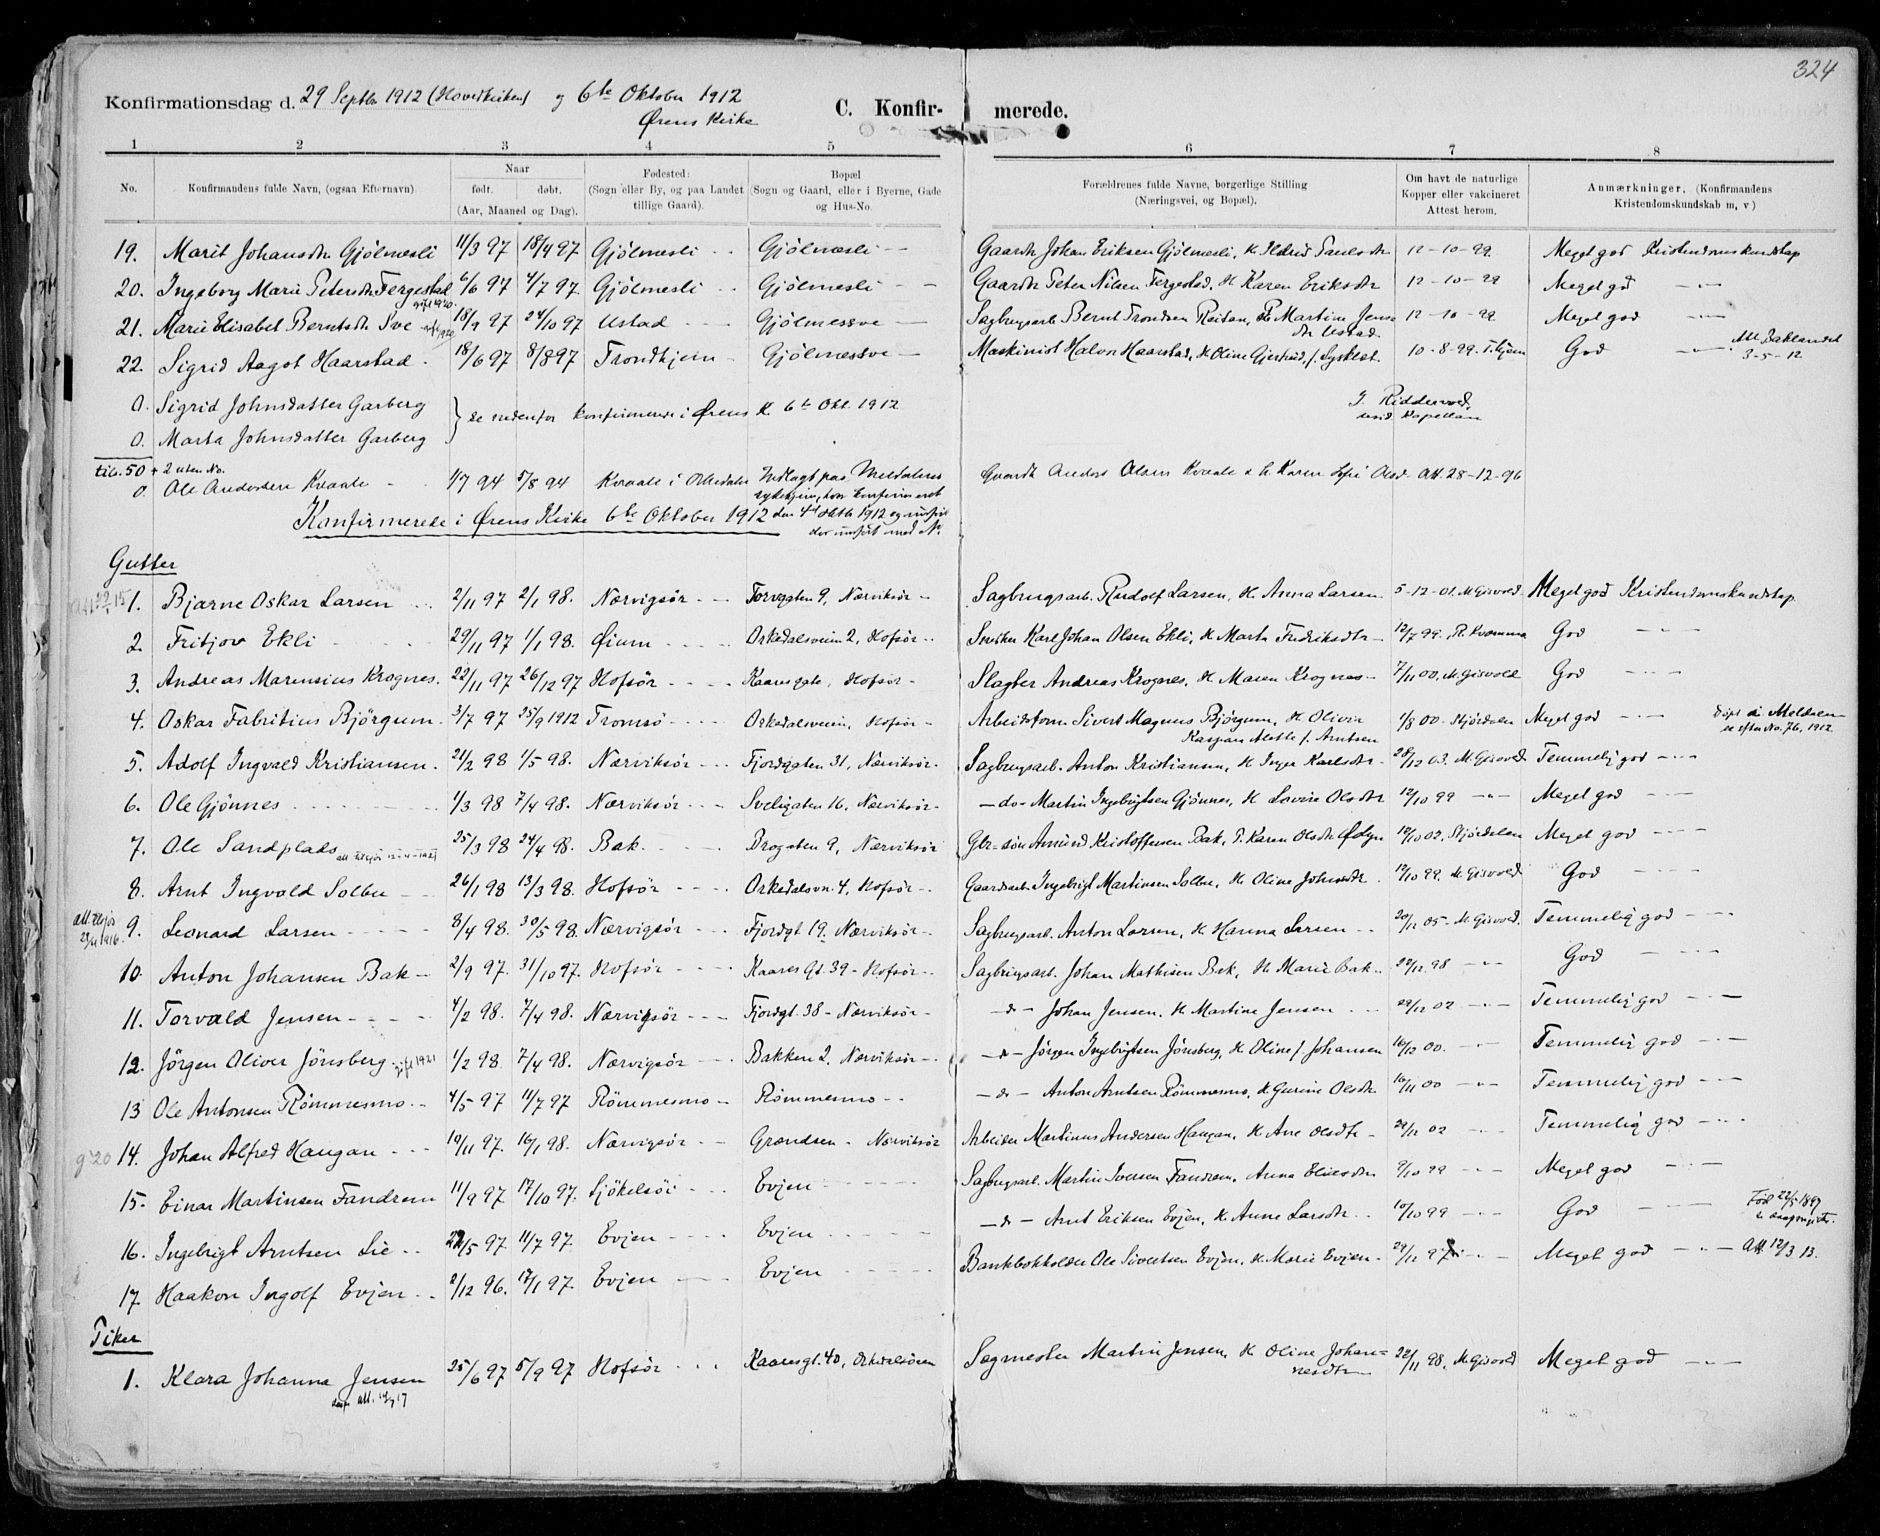 324
Konfirmationsdag d. 29 Septbr 1912 (Hovedkirken) og 6te Oktober 1912 C. Konfirmerede.
Ørens Kirke
1 2 3 4 5 6 7 8
No. Konfirmandens fulde Navn, (ogsaa Efternavn). Naar født. døbt. (Aar, Maaned og Dag). Fødested: (Sogn eller By, og paa Landet tillige Gaard). Bopæl (Sogn og Gaard, eller i Byerne, Gade og Hus-No. Forældrenes fulde Navne, borgerlige Stilling (Næringsvei, og Bopæl). Om havt de naturlige Kopper eller vakcineret Attest herom. Anmærkninger, (Konfirmandens Kristendomskundskab m, v)
19. Marit Johansdtr Gjölmesli 11/3 97 18/4 97 Gjölmesli Gjölmesli Gaardbr Johan Eriksen Gjölmesli, H. Ildrid Paulsdtr 12-10-99. Meget god Kristendomskundskap
20. Ingeborg Marie Petersdtr Fergestad 6/6 97 4/7 97 Gjölmesli Gjölmesli Gaardbr Peter Nilsen Fergestad, H. Karen Eriksdtr 12-10-99 Meget god
gift 1920.
21. Marie Elisabet Berntsdtr Sve 18/9 97 24/10 97 Ustad Gjölmessve Sagbrugsarb. Bernt Trondsen Reitan, Martine Jensdtr Ustad 12-10-99. Meget god
22. Sigrid Aagot Haarstad 18/6 97 8/8 97 Trondhjem Gjölmessve Maskinist Halvor Haarstad, H. Oline Gjertrud f. Lyseket. 10-8-99. T.hjem God Att. Baklandet 3-5-12
0. Sigrid Johnsdatter Garberg } se nedenfor konfirmerede i Ørens K 6te Okt. 1912
0. Marta Johnsdatter Garberg
J. Riddervold, resid. Kapellan
til. 50 + 2 uten No.
0. Ole Andersen Kvaale 1/7 94 5/8 94 Kvaale i Orkedalen Indlagt paa Meldalens sykehjem, Gaardbr Anders Olsen Kvaale & H. Karen Sofie Olsd. Att. 28-12-96
Konfirmerede i Ørens Kirke 6te Oktober 1912
Gutter
1. Bjarne Oskar Larsen 2/11 97 2/1 98. Nærvigsör Torvgaten 9, Nærviksör Sagbrugsarb. Rudolf Larsen, H. Anna Larsen 5-12-01. M. Gisvold Meget god Kristendomskundskap
2. Fritjov Ekli 29/11 97 1/1 98. Øium Orkedalsveien 2, Hofsör Snekker Karl Johan Olsen Ekli, H. Marta Fredriksdtr 12/7 99. R. Kvamma God
3. Andreas Marensius Krognes. 22/11 97 26/12 97 Hofsör Kaaresgate, Hofsör Slagter Andreas Krognes, H. Maren Krognes 7/11 00, M. Gisvold God
4. Oskar Fabritius Björgum. 3/7 97 25/9 1912 Tromsö Orkedalsveien, Hofsör Arbeidsform. Sivert Magnus Björgum, H. Olivia 1/8 00. Stjördalen Meget god Döpt i Meldalen se efter No. 76, 1912
Kaspara Mette f. Arntsen
5. Adolf Ingvald Kristiansen. 21/2 98 1/5 98. Nærviksör Fjordgaten 31, Nærviksör Sagbrugsarb. Anton Kristiansen, H. Inger Karlsdtr 28/12 03. M. Gisvold Temmelig god
6. Ole Gjönnes 1/3 98 7/4 98. Nærviksör Sveligaten 16, Nærviksör - do - Martin Ingebrigtsen Gjönnes, H. Lovise Olsdtr 12/10 99 Meget god
7. Ole Sandplads 25/3 98 24/4 98. Bak. Brogaten 9, Nærviksör Gbr-sön Amund Kristoffersen Bak, P. Karen Olsdtr Ødlyn 12/10 02, Stjördalen Meget god
8. Arnt Ingvald Solbu 26/1 98 13/3 98. Hofsör Orkedalsvn. 4, Hofsör Gaardsarb. Ingebrigt Martinsen Solbu, H. Oline Johnsdtr 12/10 99. M. Gisvold God
9. Leonard Larsen 8/4 98. 30/5 98. Nærvigsör Fjordgt 19, Nærviksör Sagbrugsarb. Anton Larsen, H. Hanna Larsen 20/12 05. M. Gisvold. Temmelig god
10. Anton Johansen Bak 2/9 97. 31/10 97. Hofsör Kaares Gt. 39 - Hofsör Sagbrugsarb. Johan Mathisen Bak, H. Marie Bak 22/12 98 God
11. Torvald Jensen 4/2 98. 7/4 98. Nærvigsör Fjordgt. 38 - Nærviksör - do - Johan Jensen. H. Martine Jensen 29/12 02 Temmelig god
12. Jörgen Oliver Jönsberg gift 1921 1/2 98. 7/4 98. Nærvigsör Bakken 2. Nærviksör - do - Jörgen Ingebrigtsen Jönsberg, H. Oline f. Johansen 16/12 00. Temmelig god
13 Ole Antonsen Römmesmo 4/5 97 11/7 97 Römmesmo Römmesmo - do - Anton Arntsen Römmesmo, H. Gurine Olsdtr 16/11 00 Temmelig god
g 20 14. Johan Alfred Haugan 19/11 97. 16/1 98. Nærvigsör Grændsen - Nærviksör Arbeider Martinus Andersen Haugan, H. Ane Olsdtr 29/12 02 Temmelig god
15. Einar Martinsen Fandrem 11/9 97 17/10 97. Sjökelsöi Evjen Sagbrugsarb. Martin Iversen Fandrem, Anna Eliesdtr 9/10 99 Meget god
16. Ingebrigt Arntsen Lie 22/5 97 11/7 97. Evjen Evjen - do - Arnt Eriksen Evjen, H. Anne Larsdtr 10/10 99 God Föd 22/5 1897
17. Haakon Ingolf Evjen 2/12 96. 17/1 97. Evjen Evjen Bankbokholder Ole Sivertsen Evjen, H. Marie Evjen 29/11 97 Meget god Att. 12/3 13.
Piker
1. Klara Johanna Jensen 25/6 97 5/9 97 Hofsör Kaaresgt. 40, Orkedalsören Sagmester Martin Jensen, H. Oline Johannesdtr 22/11 98, M. Gisvold Meget god